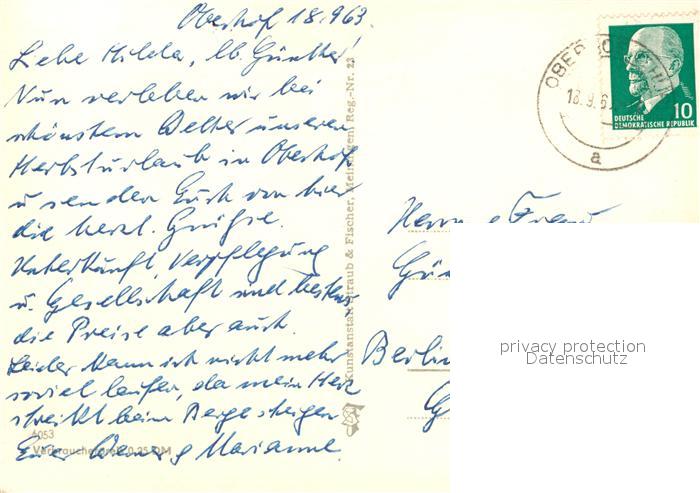 Oberhof 18.9.63.
Liebe Hilda, lb. Günther!
Nun verleben wir bei
schönstem Wetter unseren
Herbsturlaub in Oberhof
u senden Euch von hier
die herzl. Grüße.
Unterkunft, Verpflegung
u. Gesellschaft sind bestens
die Preise aber auch.
Leider kann ich nicht mehr
soviel laufen, da mein Herz
streikt beim Bergesteigen
Euer Werner g Marianne.
6053
Verbraucherpreis 0,25 DM
Kunstanstalt Straub & Fischer, Meiningen Reg.-Nr. 23
OBERHOF
18.9.6
a
10
DEUTSCHE
DEMOKRATISCHE REPUBLIK
Herrn e Frau
Gün
Berlin
G
privacy protection
Datenschutz